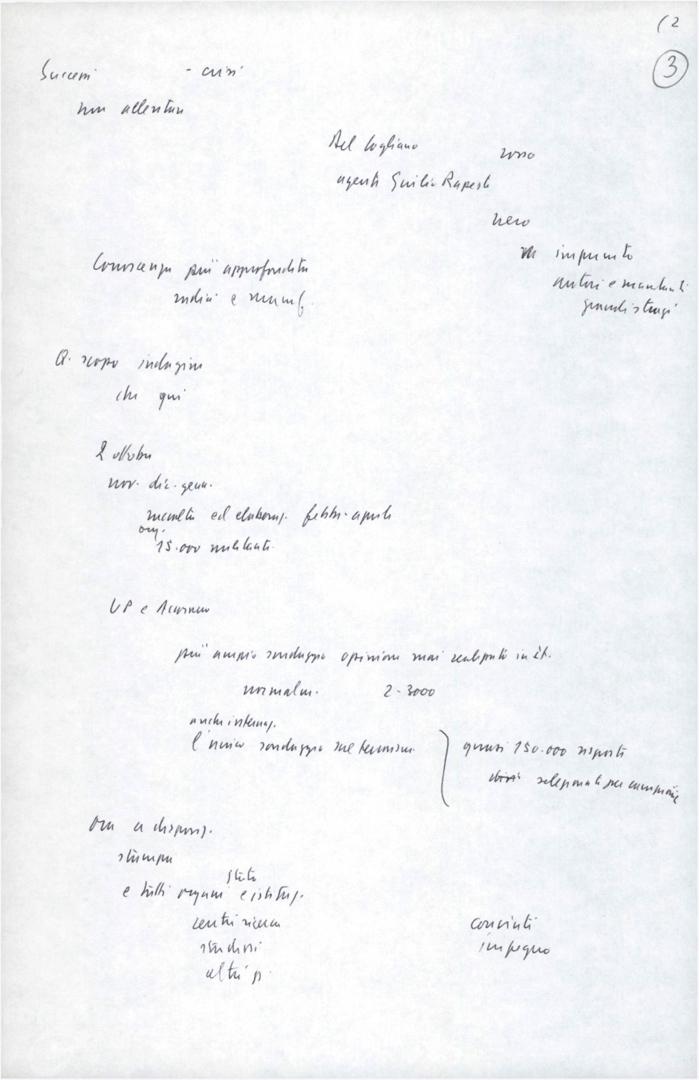 (2
3
Successi - crisi
non allentare
Del Cogliano rosso
agenti
nero
impunito
autori e mandanti
grandi stragi
Conoscenza più approfondita
radici e manif.
Q. scopo indagine
che qui
2 ottobre
nov. dic. genn.
raccolta ed elaboraz. febbr. aprile
15.000 militanti
UP e
più ampio sondaggio opinione mai realizzato in It.
normalm. 2-3000
anche internaz.
l'unico sondaggio sul terrorismo
quasi 150.000 risposte
selezionati per campione
Ora a disposiz.
stampa
Stato
e tutti organi e istituz.
centri ricerca
studiosi
altri p.
convinti
impegno